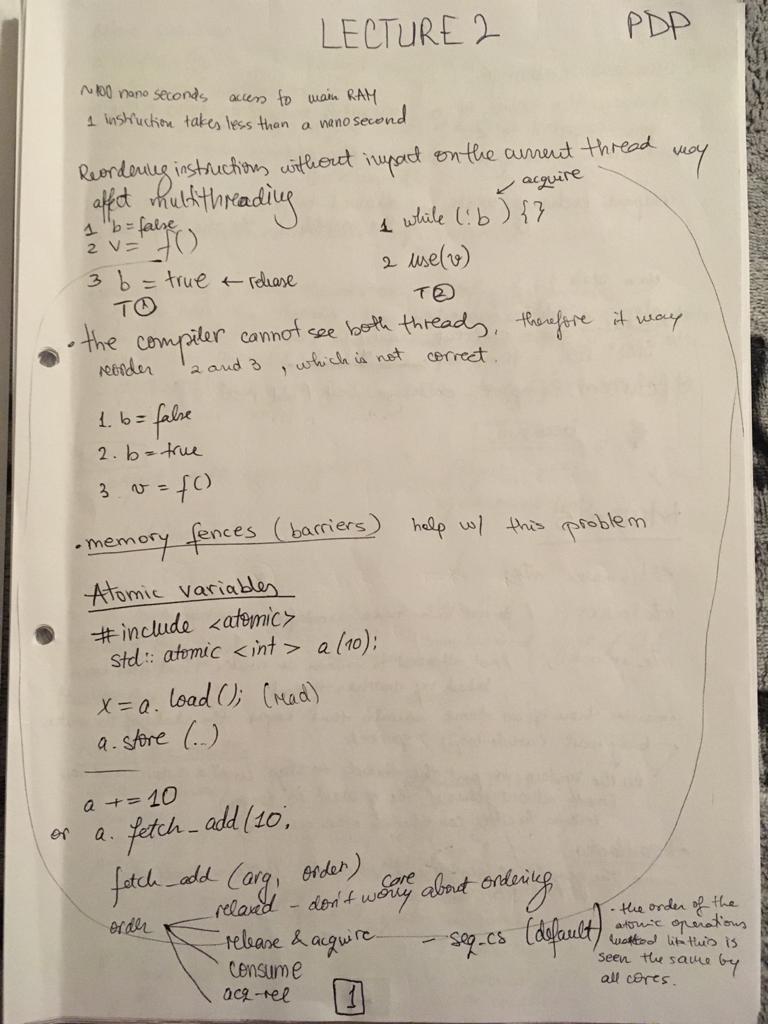 LECTURE 2 PDP
~100 nano seconds access to main RAM
1 instruction takes less than a nanosecond
Reordering instructions without impact on the current thread may
affect multithreading
← acquire
1 b = false
1 while (!b) {}
2 v = f()
2 use(v)
3 b = true ← release
T①
T②
• the compiler cannot see both threads, therefore it may
reorder 2 and 3, which is not correct.
1. b = false
2. b = true
3 v = f()
• memory fences (barriers) help w/ this problem
Atomic variables
#include <atomic>
std:: atomic <int> a(10);
x = a. load(); (read)
a. store (..)
a += 10
or a. fetch_add(10;
fetch_add (arg, order)
relaxed - don't care about ordering
order
release & acquire - seq_cs (default)
consume
acq-rel
• the order of the
atomic operations
like this is
seen the same by
all cores.
1